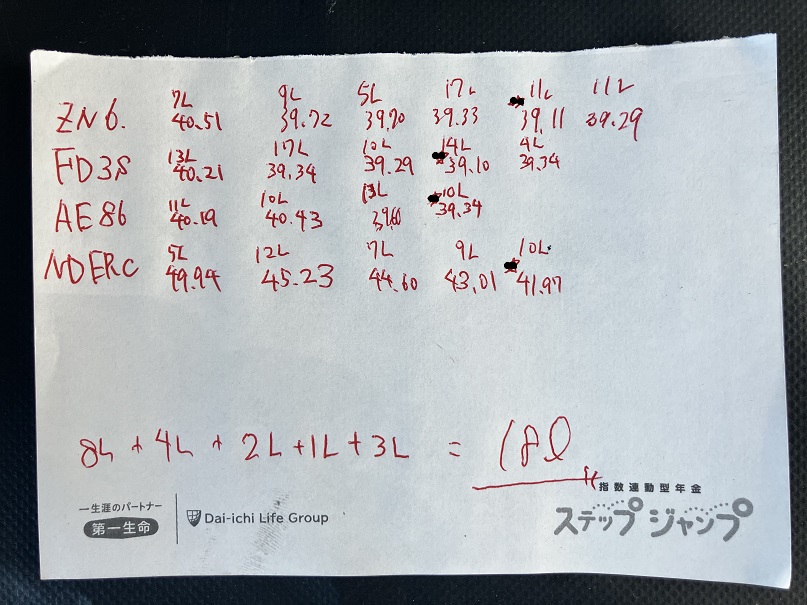 7L 9L 5L 17L 11L 11L
ZN6. 40.51 39.72 39.70 39.33 39.11 39.29
13L 17L 10L 14L 4L
FD3S 40.21 39.34 39.29 39.10 39.34
11L 10L 13L 10L
AE86 40.19 40.43 39.60 39.34
5L 12L 7L 9L 10L
NDERC 49.94 45.23 44.60 43.01 41.97
8L + 4L + 2L + 1L + 3L = 18l
指数連動型年金
一生涯のパートナー
第一生命 Dai-ichi Life Group ステップ ジャンプ